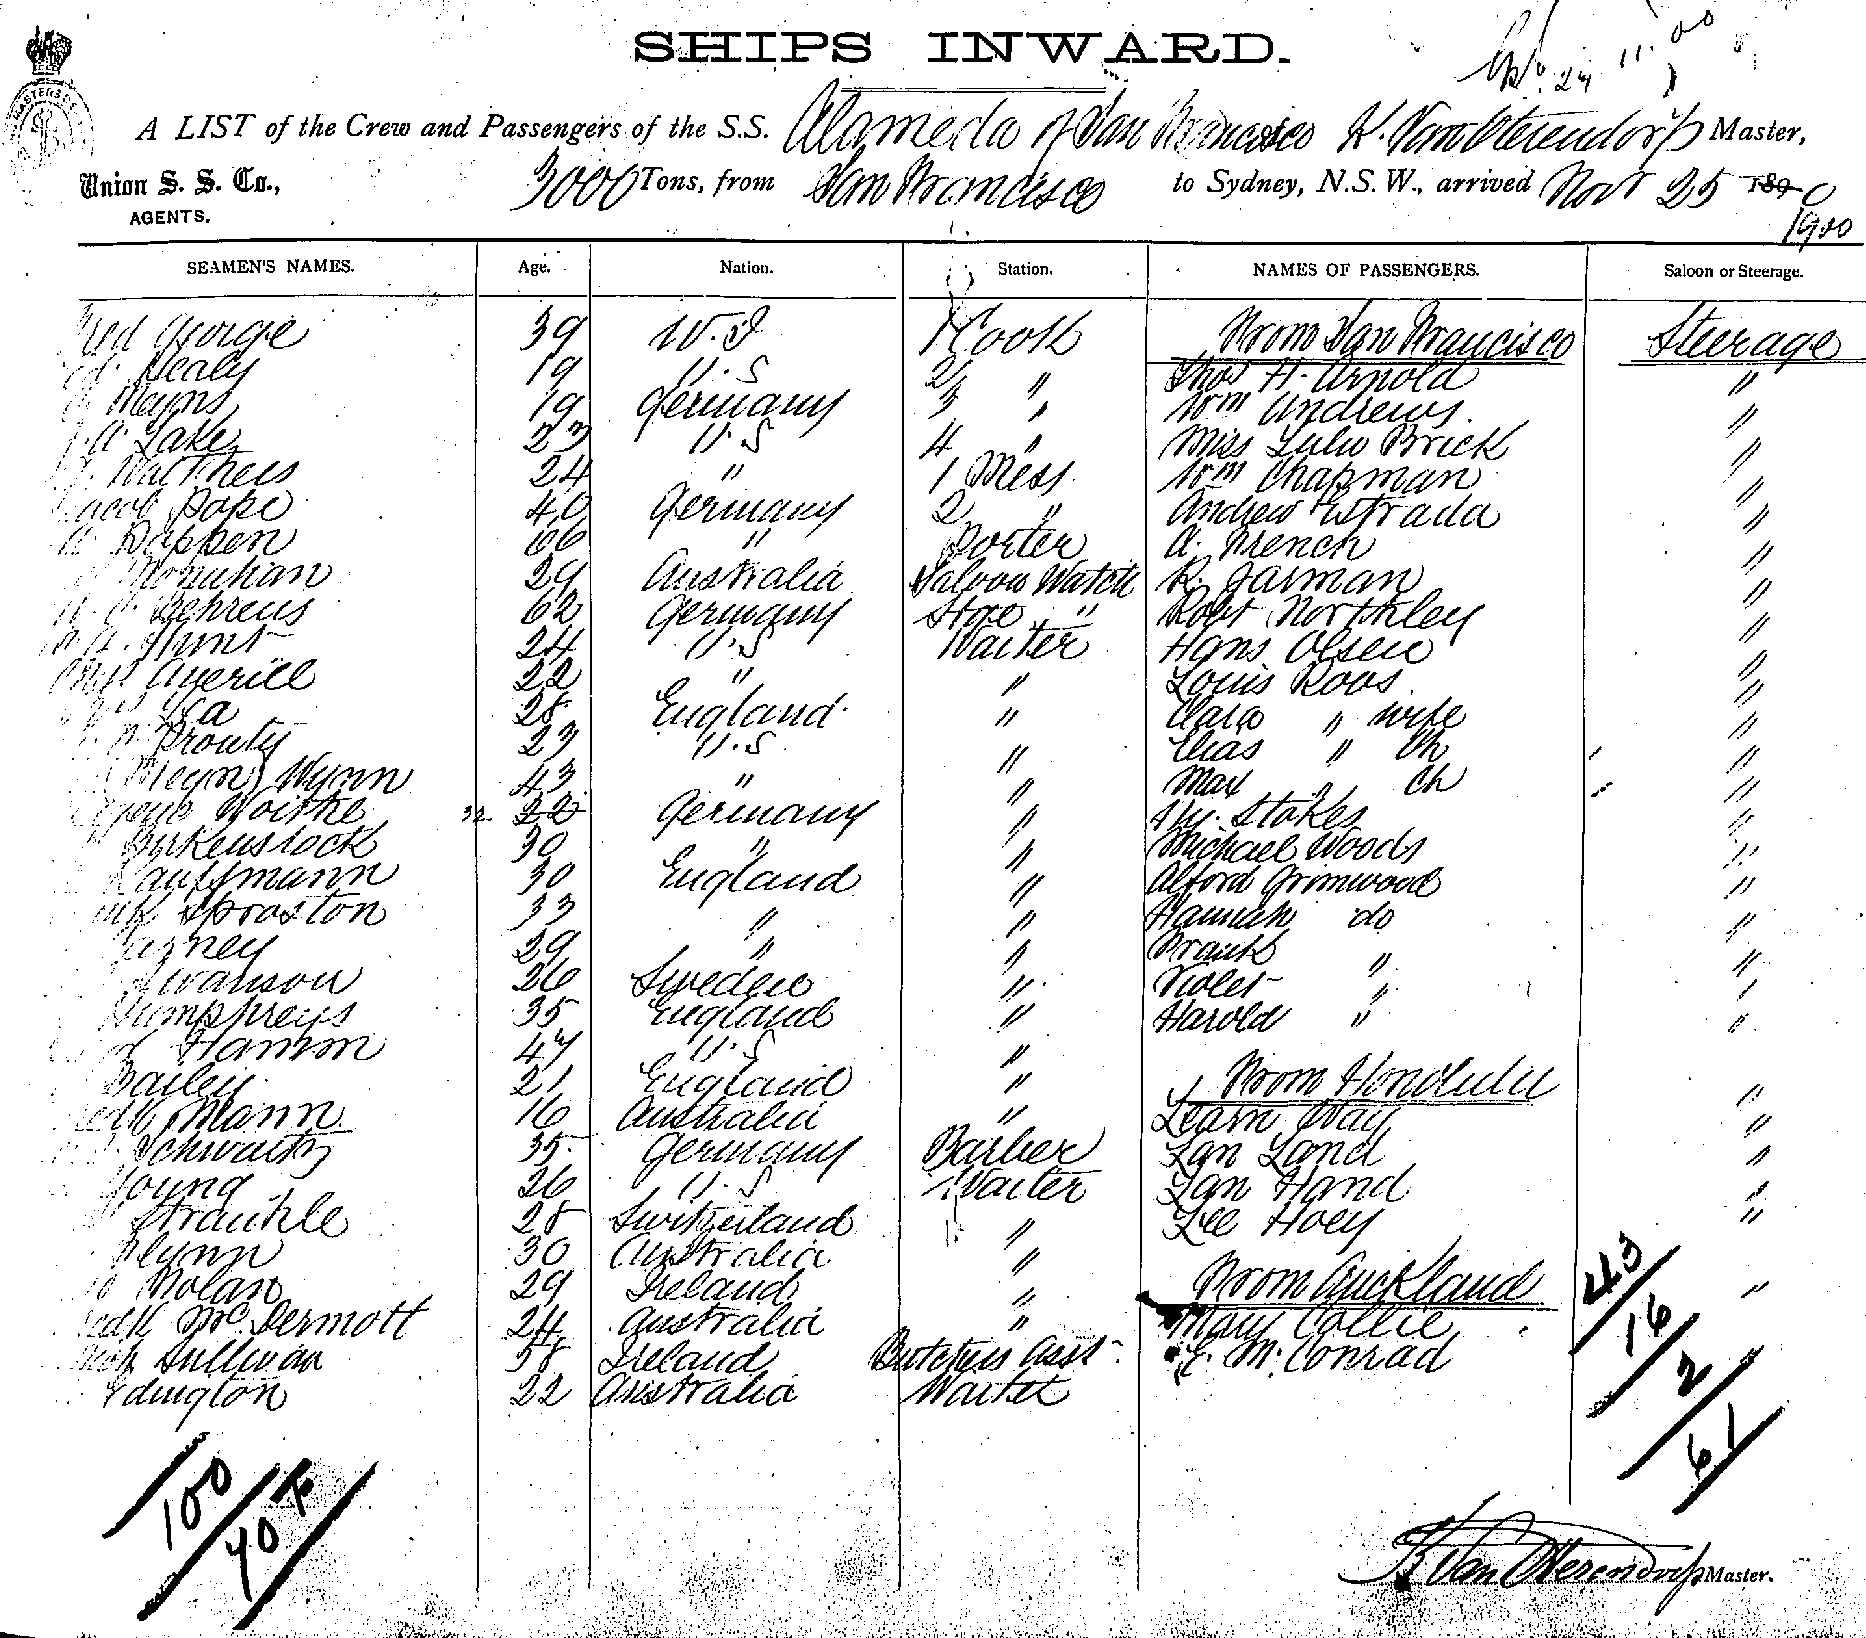 SHIPS INWARD.
A LIST of the Crew and Passengers of the S.S. Alameda of San Francisco H. Van Oterendorp Master,
Union S. S. Co., 3000 Tons, from San Francisco to Sydney, N.S.W., arrived Nov 25 1890
AGENTS. 1900
SEAMEN'S NAMES. Age. Nation. Station. NAMES OF PASSENGERS. Saloon or Steerage.
George 39 W. I Cook From San Francisco Steerage
Healy 19 U.S 2 " Thos H. Arnold "
Meyns 19 Germany 3 " Wm Andrews. "
Lake 23 U.S 4 " Miss Lulu Brick "
Matthews 24 " 1 Mess Wm Chapman "
Jacob Pape 40 Germany 2 " Andrew Estrada "
Pappen 66 " Porter A. French "
Monahan 29 Australia Saloon Watch R. Jarman "
Behrens 62 Germany " Robt Northley "
Hunt 24 U.S Waiter Hans Olsen "
Averill 22 " " Louis Roos "
28 England " Clara " wife "
Prouty 23 U.S " Elias " Ch "
(Meyn) Wynn 43 " " Max Ch "
Woithe 32 22 Germany " Stokes "
Birkenstock 30 " " Michael Woods "
Kauffmann 30 England " Alford Grimwood "
Sproston 33 " " Hannah do "
29 " " Frank " "
Swanson 26 Sweden " Violet " "
Humphreys 35 England " Harold " "
Hamm 47 U.S "
Bailey 21 England " From Honolulu "
Mann 16 Australia " Learn Way "
Schwartz 35 Germany Barber Lan Land "
Young 26 U.S Waiter Lan Hand "
28 Switzerland " Lee Hoey "
Flynn 30 Australia "
Nolan 29 Ireland " From Auckland "
McDermott 24 Australia " Mary Collie
Sullivan 38 Ireland Butchers Asst. E. M. Conrad
Edington 22 Australia Waiter
43
16
2
61
100
Van Oterendorp Master.